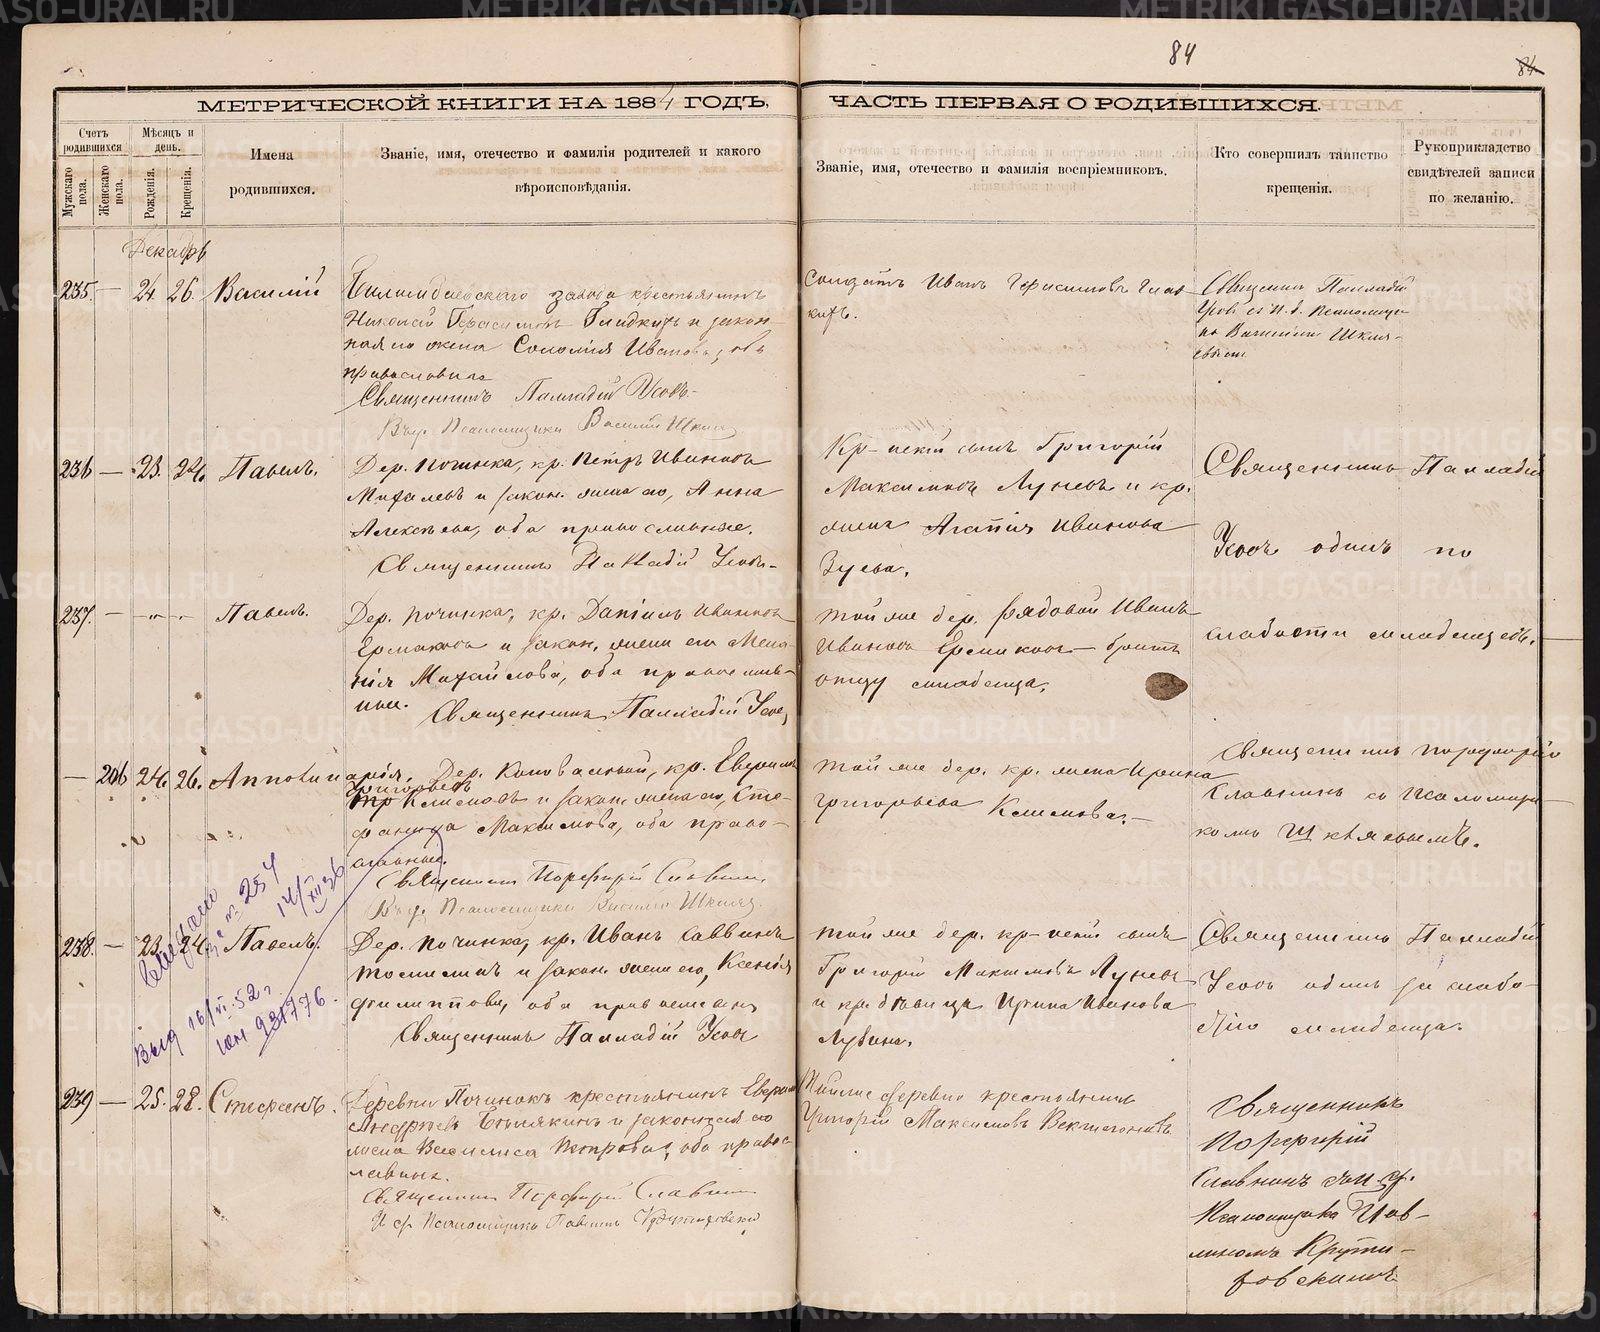 84
84
МЕТРИЧЕСКОЙ КНИГИ НА 1884 ГОДЪ,
ЧАСТЬ ПЕРВАЯ О РОДИВШИХСЯ.
Счетъ родившихся
Мужскаго пола.
Женскаго пола.
Мѣсяцъ и день.
Рожденія.
Крещенія.
Имена родившихся.
Званіе, имя, отечество и фамилія родителей и какого вѣроисповѣданія.
Званіе, имя, отечество и фамилія воспріемниковъ.
Кто совершилъ таинство крещенія.
Рукоприкладство свидѣтелей записи по желанію.
Декабрь
235. — 24 26. Василій
Билимбаевскаго завода крестьянинъ
Николай Герасимовъ Гладкихъ и закон-
ная его жена Соломія Иванова, оба
православные
Священникъ Палладій Усовъ
Псаломщика Василій
Солдатъ Иванъ Герасимовъ Глад-
кихъ.
Священникъ Палладій
Усовъ съ и. д. псаломщи-
ка Василіемъ Шкля-
евымъ
236 — 23. 24. Павелъ.
Дер. Починка, кр. Петръ Ивановъ
Михалевъ и закон. жена его, Анна
Алексѣева, оба православные.
Священникъ Палладій Усовъ
Кр-нскій сынъ Григорій
Максимовъ Луневъ и кр.
жена Агапія Иванова
Зуева.
Священникъ Палладій
Усовъ одинъ по
237. — — „ — Павелъ.
Дер. Починка, кр. Даніилъ Ивановъ
Ермаковъ и закон. жена его Мела-
нія Михайлова, оба православ-
ные.
Священникъ Палладій Усовъ
Той же дер. рядовой Иванъ
Ивановъ Ермаковъ — братъ
отцу младенца.
слабости младенцевъ.
— 206 24. 26. Апполинарія.
Дер. Коноваловой, кр.
Григорьевъ
Климовъ и закон. жена его, Сте-
фанида Максимова, оба право-
славные.
Священникъ Порфирій Славнинъ
Псаломщика Василій
Той же дер. кр. жена Ирина
Григорьева Климова.—
Священникъ Порфирій
Славнинъ со псаломщи-
комъ Шкляевымъ.
238. — 23. 24. Павелъ.
Дер. Починка, кр. Иванъ Саввинъ
Томилинъ и закон. жена его, Ксенія
Филиппова, оба православны
Священникъ Палладій Усовъ
Той же дер. кр-нскій сынъ
Григорій Максимовъ Луневъ
и кр. дѣвица Ирина Иванова
Священникъ Палладій
Усовъ одинъ за слабо-
стію младенца.
за № 254
14/XII 36
Выд 16/VI.52.
931776.
239 — 25. 28. Стефанъ.
Деревни Починокъ крестьянинъ
Андреевъ и законная его
жена Василиса Петрова, оба правос-
лавные.
Священникъ Порфирій Славнинъ
Псаломщика Павлинъ Крутиховскій
Тойже деревни крестьянинъ
Григорій Максимовъ
Священникъ
Порфирій
Славнинъ
Псаломщика Пав-
линомъ Крути-
ховскимъ
METRIKI.GASO-URAL.RU